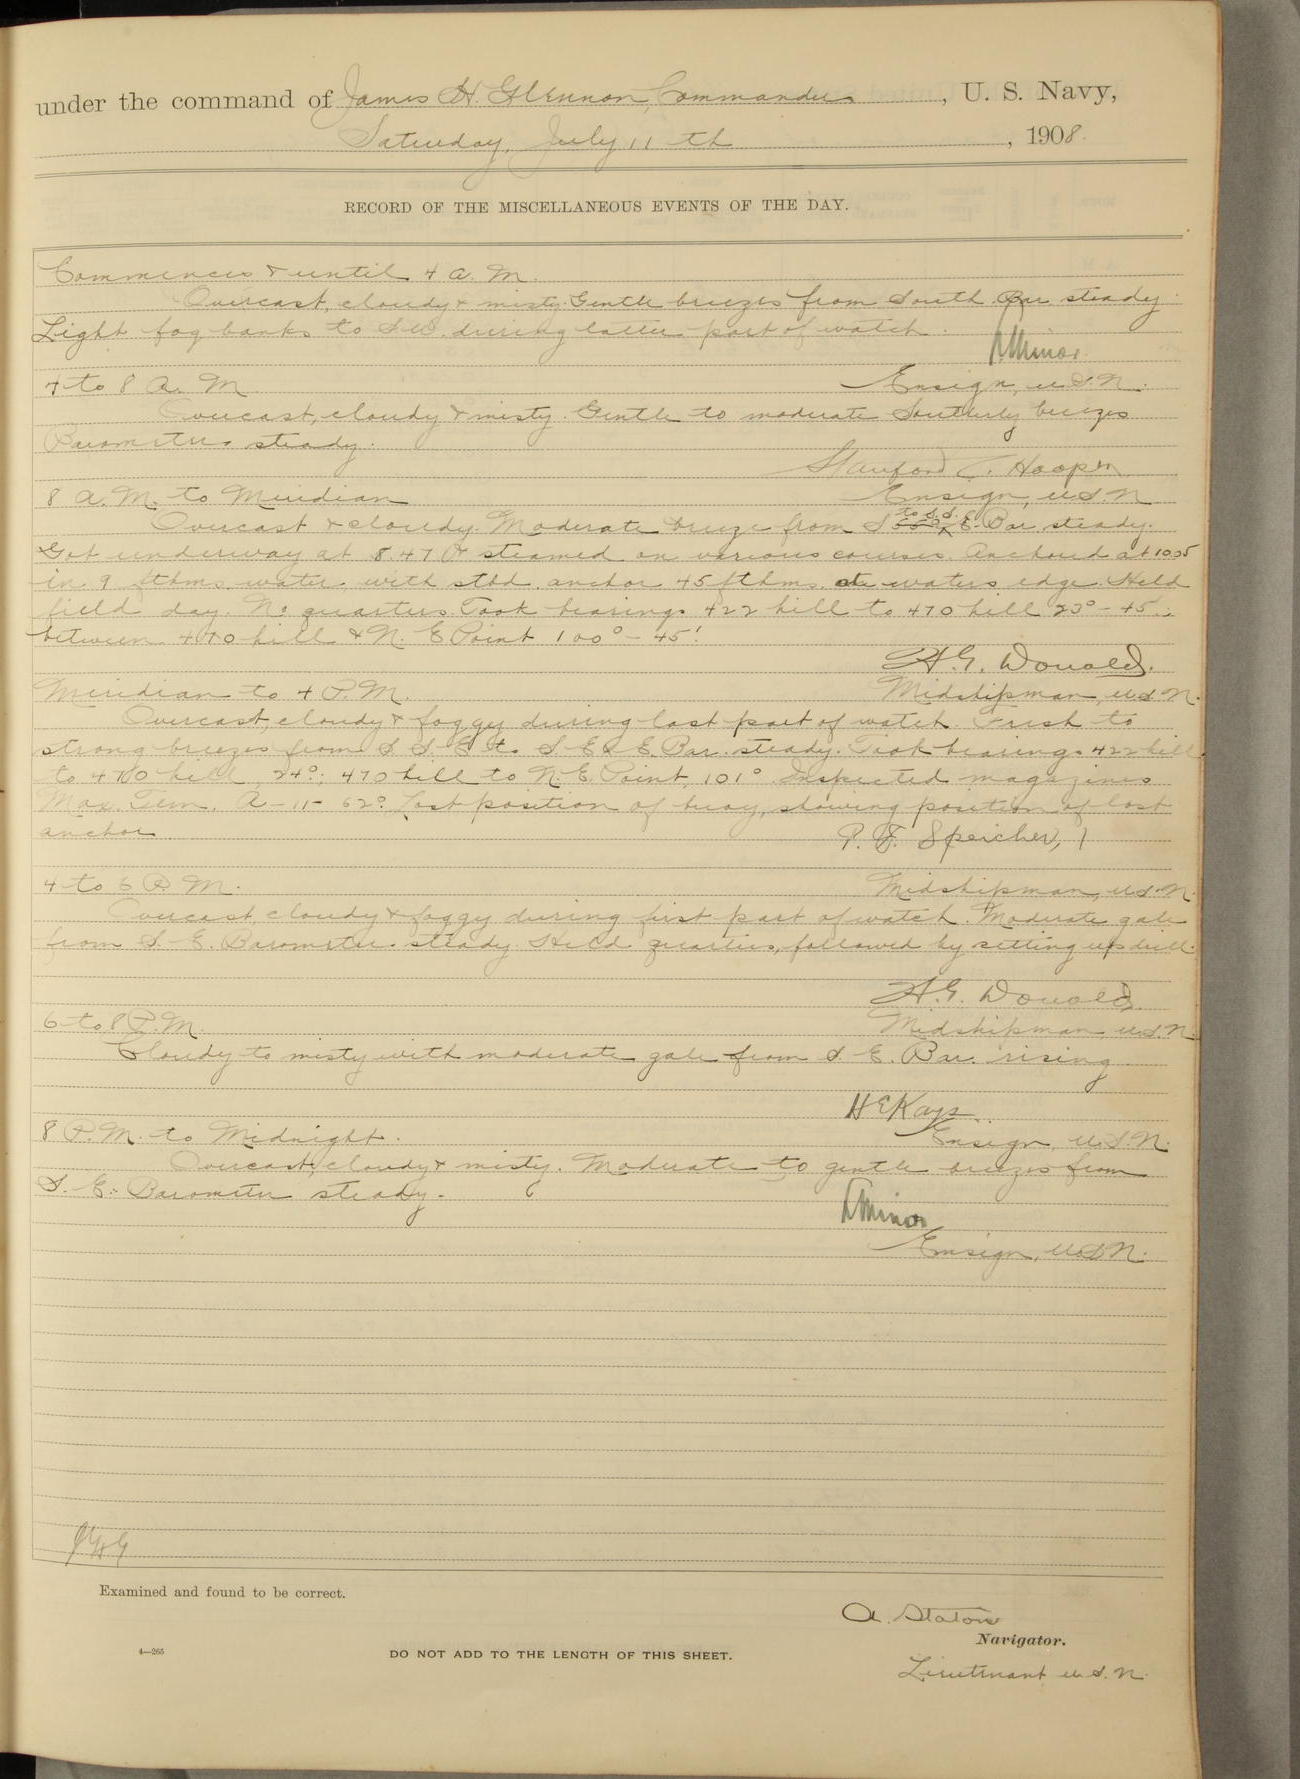 under the command of James H. Glennon, Commander, U. S. Navy,
Saturday, July 11 th, 1908.
RECORD OF THE MISCELLANEOUS EVENTS OF THE DAY.
Commences & until 4 A. M.
Overcast, cloudy & misty. Gentle breezes from South. Bar. steady.
Light fog banks to S.W. during latter part of watch.
Minor
4 to 8 A. M.
Ensign, U.S.N.
Overcast, cloudy & misty. Gentle to moderate Southerly breezes
Barometer steady.
Stanford C. Hooper
8 A.M. to Meridian
Ensign, U.S.N
Overcast & cloudy. Moderate breeze from S to S.S.E. Bar. steady.
Got underway at 8.47 & steamed on various courses. Anchored at 10.05
in 9 fthms. water with stbd. anchor 45 fthms. at waters edge. Held
field day. No quarters. Took bearings 422 hill to 470 hill 23° - 45';
between 470 hill & N. E Point 100° - 45'.
H.G. Donald.
Meridian to 4 P.M.
Midshipman, U.S.N.
Overcast, cloudy & foggy during last part of watch. Fresh to
strong breezes from S. S. E. to S. E. & E. Bar. steady. Took bearings 422 hill
to 470 hill, 24°; 470 hill to N. E. Point, 101°. Inspected magazines
Max. Tem. A-11- 62°. Lost position of buoy, showing position of lost
anchor.
P. F. Speicher,
4 to 6 P. M.
Midshipman, U.S.N.
Overcast, cloudy & foggy during first part of watch. Moderate gale
from S. E. Barometer steady. Held quarters, followed by setting up drill.
H.G. Donald.
6 to 8 P.M.
Midshipman, U.S.N.
Cloudy to misty with moderate gale from S. E. Bar. rising
H E Kays
8 P.M. to Midnight.
Ensign, U.S.N.
Overcast, cloudy & misty. Moderate to gentle breezes from
S. E. Barometer steady.
Minor
Ensign, U.S.N.
Examined and found to be correct.
A. Staton
Navigator.
4—265
DO NOT ADD TO THE LENGTH OF THIS SHEET.
Lieutenant U.S.N.